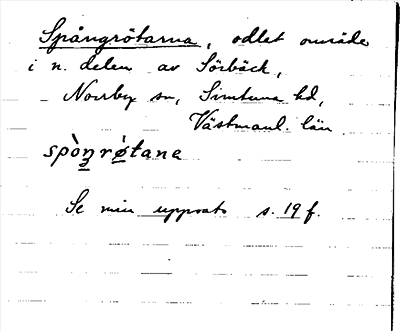 Spångrötarna, odlat område
i n. delen av Sörbäck,
Norrby sn, Simtuna hd,
Västmanl. län
spòŋrǿtana
Se min uppsats s. 19 f.